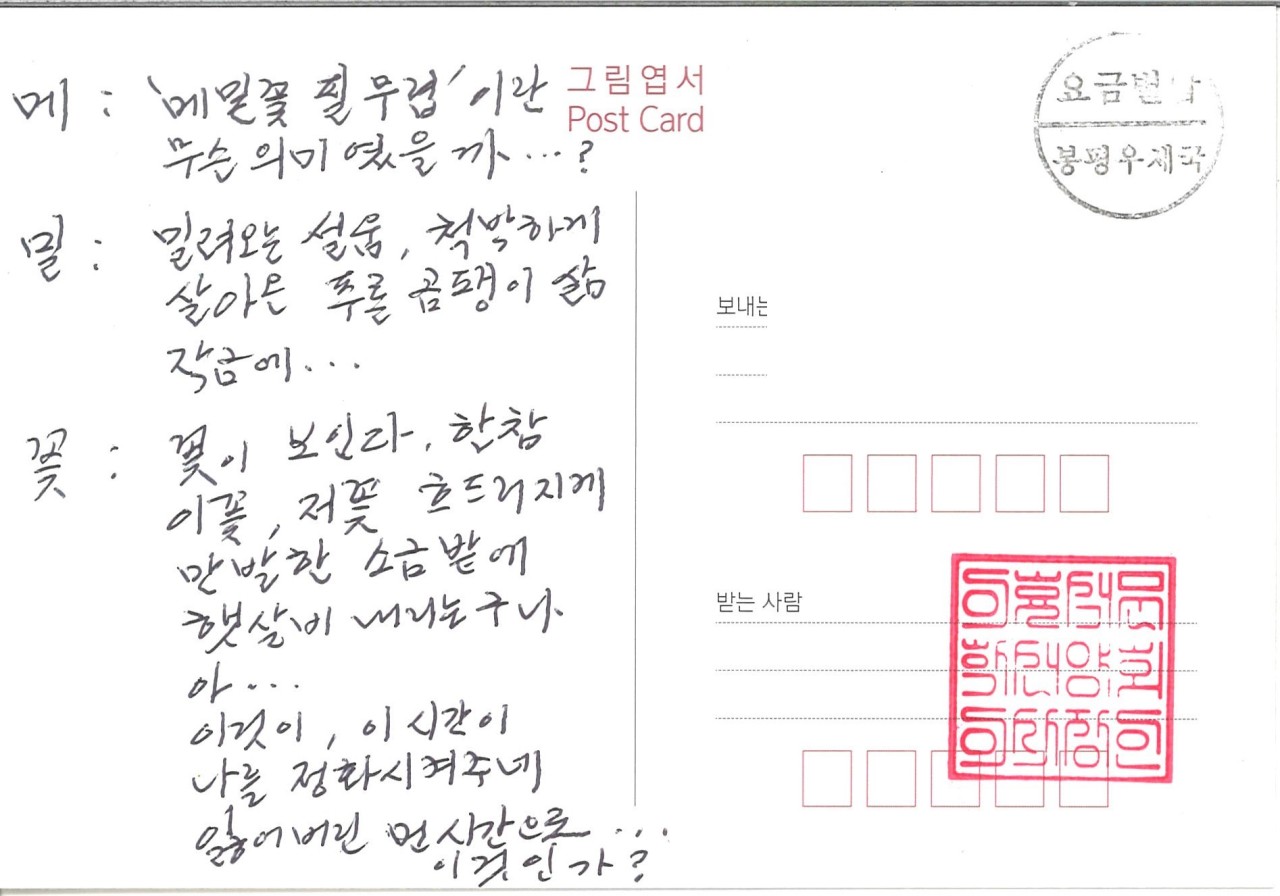 메 : '메밀꽃 필 무렵' 이란
무슨 의미 였을 까...?
밀 : 밀려오는 설움, 척박하게
살아온 푸른 곰팽이 삶
작금에...
꽃 : 꽃이 보인다, 한참
이꽃, 저꽃 흐드러지게
만발한 소금밭에
햇살비 내리는구나
아...
이것이, 이 시간이
나를 정화시켜주네
잃어버린 먼 시간으로...
이것인가?
그림엽서
Post Card
요금별납
봉평우체국
보내는
받는 사람